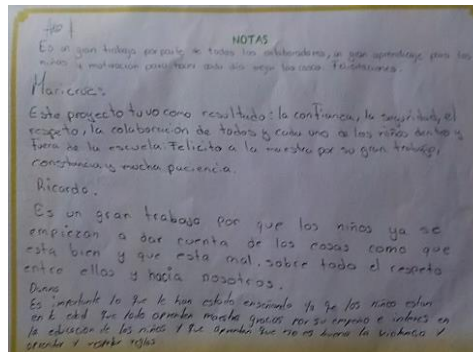 NOTAS
Es un gran trabajo por parte de todos los colaboradores, un gran aprendizaje para los
niños y motivación para hacer cada día mejor las cosas. Felicitaciones.
Maricruz:
Este proyecto tuvo como resultado: la confianza, la seguridad, el
respeto, la colaboración de todos y cada uno de los niños dentro y
fuera de la escuela. Felicito a la maestra por su gran trabajo,
constancia y mucha paciencia.
Ricardo.
Es un gran trabajo por que los niños ya se
empiezan a dar cuenta de las cosas como que
esta bien y que esta mal. sobre todo el respeto
entre ellos y hacia nosotros.
Es importante lo que le han estado enseñando ya que los niños estan
en la edad que todo aprenden maestra gracias por su empeño e interes en
la educación de los niños y que aprendan que no es buena la violencia y
aprendan y respetar reglas